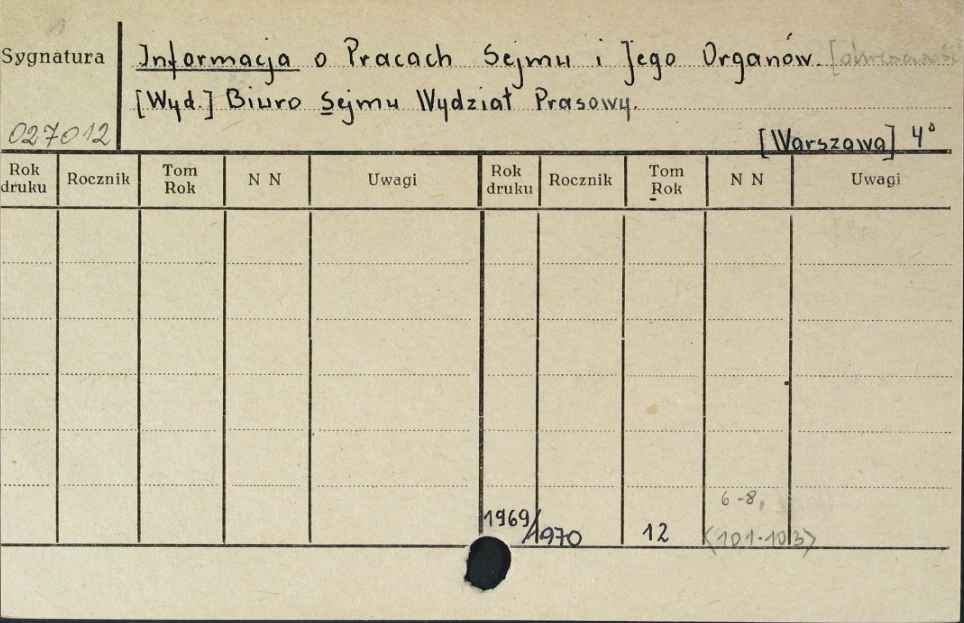 Sygnatura
Informacja o Pracach Sejmu i Jego Organów.
[Wyd.] Biuro Sejmu Wydział Prasowy.
027012
[Warszawa] 4°
Rok druku Rocznik Tom Rok N N Uwagi Rok druku Rocznik Tom Rok N N Uwagi
6-8,
1969/1970 12 <101-103>